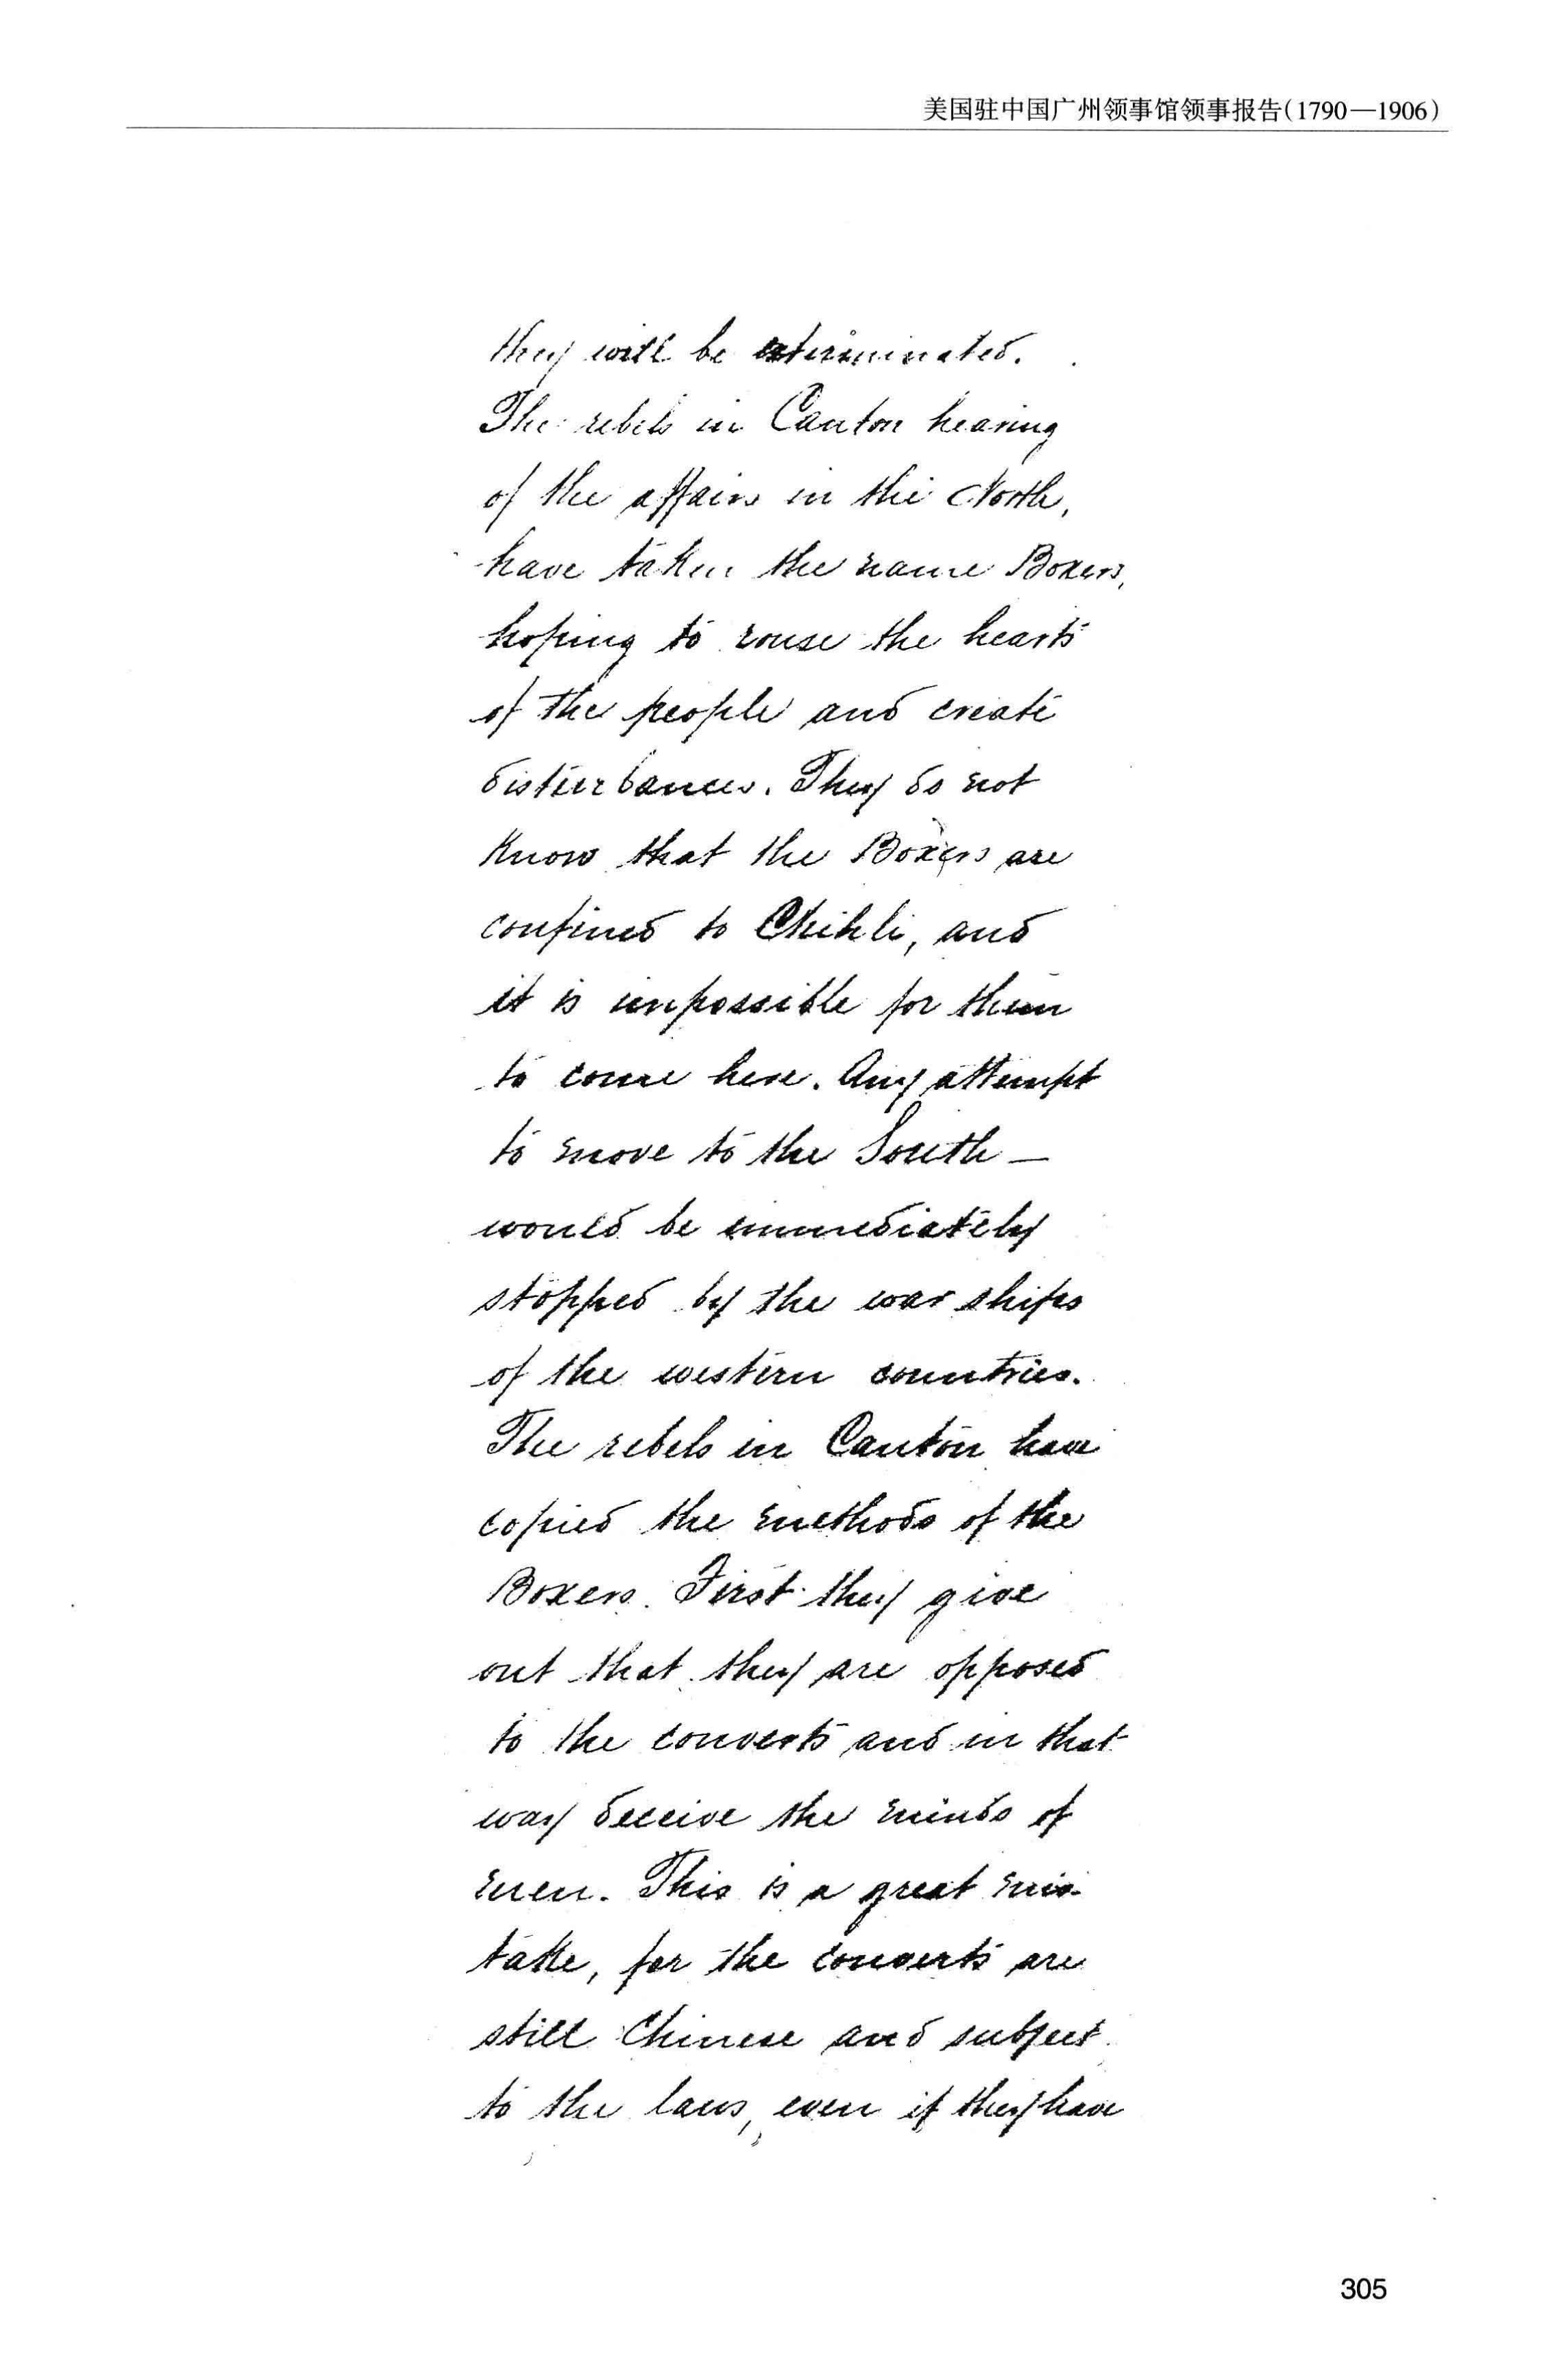 美国驻中国广州领事馆领事报告(1790—1906)
they will be exterminated.
The rebels in Canton hearing
of the affairs in the North,
have taken the name Boxers,
hoping to rouse the hearts
of the people and create
disturbances. They do not
know that the Boxers are
confined to Chihli, and
it is impossible for them
to come here. Any attempt
to move to the South —
would be immediately
stopped by the war ships
of the western countries.
The rebels in Canton have
copied the methods of the
Boxers. First they give
out that they are opposed
to the converts and in that
way deceive the minds of
men. This is a great mis-
take, for the converts are
still Chinese and subject
to the laws, even if they have
305